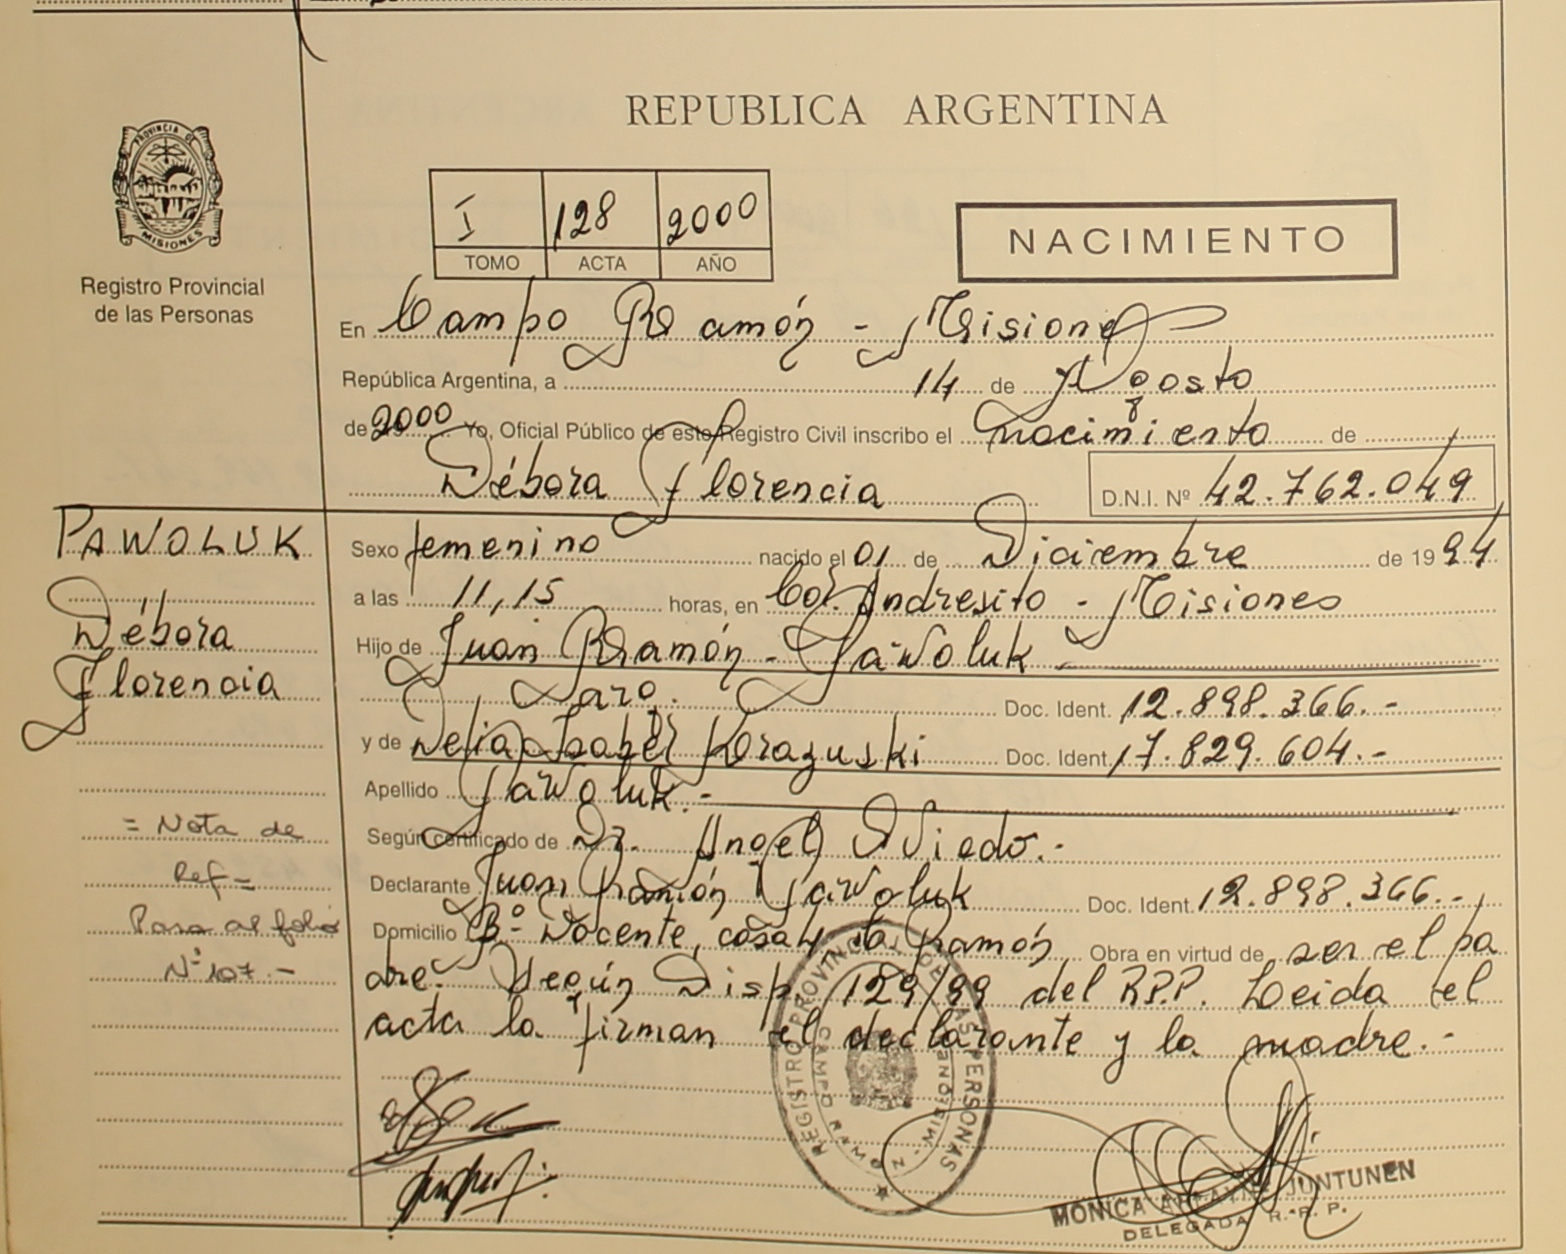 REPUBLICA ARGENTINA
PROVINCIA DE
MISIONES
Registro Provincial
de las Personas
I 128 2000
TOMO ACTA AÑO
NACIMIENTO
En Campo Ramón - Misiones
República Argentina, a 14 de Agosto
de 2000 Yo, Oficial Público de este Registro Civil inscribo el nacimiento de
Débora Florencia D.N.I. Nº 42.762.049
PAWOLUK
Débora
Florencia
Sexo femenino nacido el 01 de Diciembre de 1994
a las 11,15 horas, en Col. Andresito - Misiones
Hijo de Juan Ramón Pawoluk
Doc. Ident. 12.898.366.-
y de Delia Isabel Korazuski Doc. Ident. 17.829.604.-
Apellido Pawoluk.-
Según certificado de Dr. Angel Oviedo.-
Declarante Juan Ramón Pawoluk Doc. Ident. 12.898.366.-
Domicilio Bº Docente, casa Ramón Obra en virtud de ser el pa
dre. Según Disp. 129/99 del R.P.P. Leida el
acta la firman el declarante y la madre.-
= Nota de
Ref =
Pasa al folio
Nº 107.-
REGISTRO PROVINCIAL DE LAS PERSONAS
CAMPO RAMON - MISIONES
MONICA JUNTUNEN
DELEGADA R.P.P.